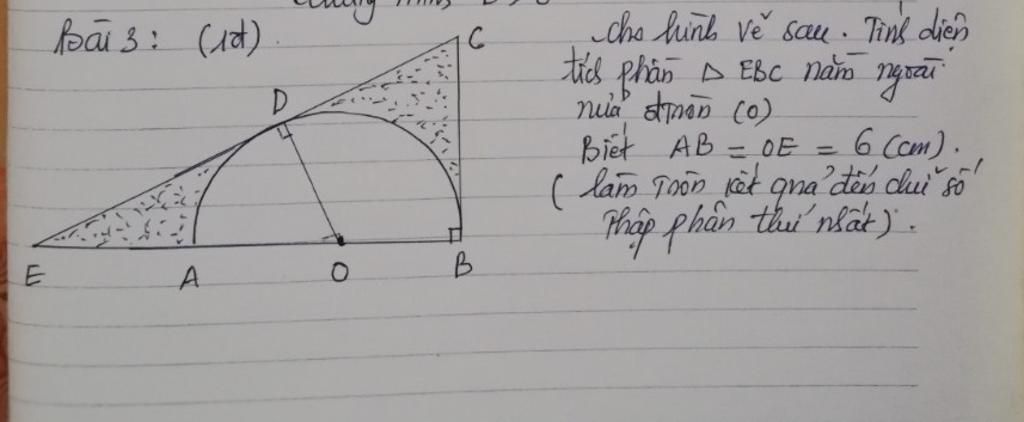 Bài 3: (1đ).
Cho hình vẽ sau. Tính diện
tích phần Δ EBC nằm ngoài
nửa đtròn (O)
Biết AB = OE = 6 (cm).
( làm tròn kết quả đến chữ số
thập phân thứ nhất).
C
D
E
A
O
B